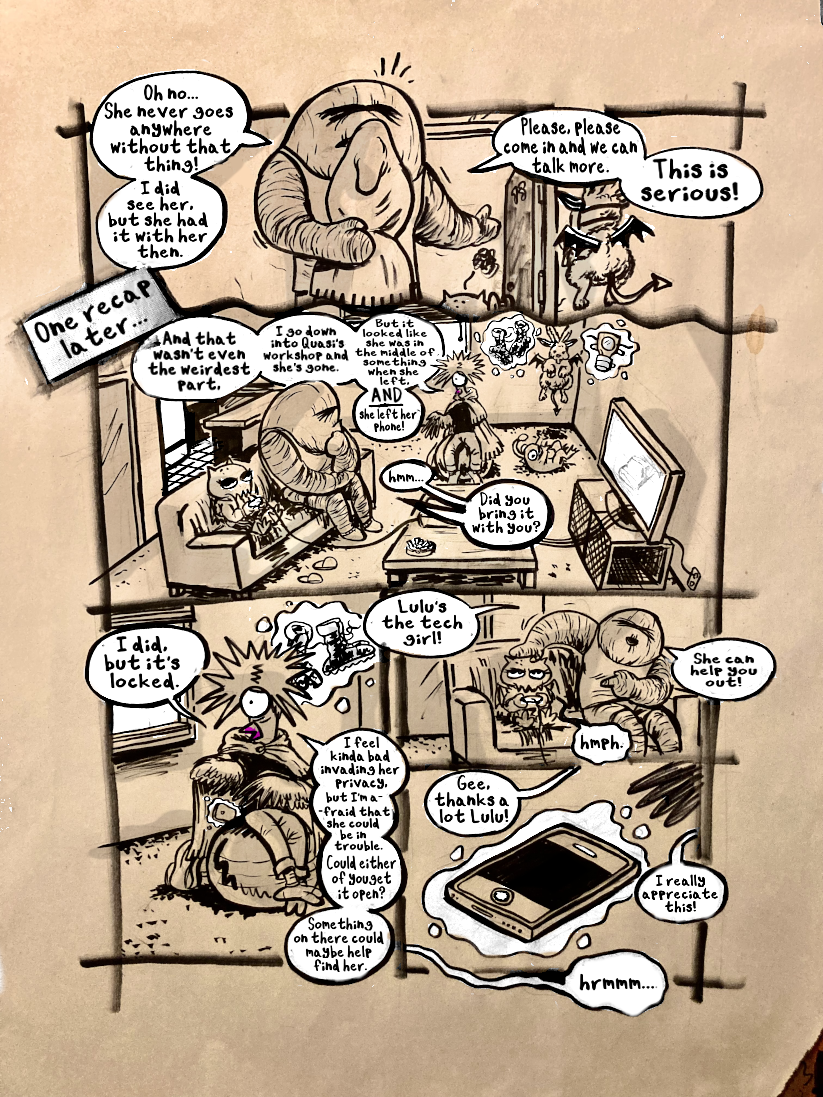 Oh no...
She never goes
anywhere
without that
thing!
I did
see her,
but she had
it with her
then.
Please, please
come in and we can
talk more.
This is
serious!
One recap
later...
And that
wasn't even
the weirdest
part.
I go down
into Quasi's
workshop and
she's gone.
But it
looked like
she was in
the middle of
something
when she
left,
AND
she left her
phone!
hmm...
Did you
bring it
with you?
I did,
but it's
locked.
I feel
kinda bad
invading her
privacy,
but I'm a-
-fraid that
she could
be in
trouble.
Could either
of youget
it open?
Something
on there could
maybe help
find her.
Lulu's
the tech
girl!
She can
help you
out!
hmph.
Gee,
thanks a
lot Lulu!
I really
appreciate
this!
hrmmm...